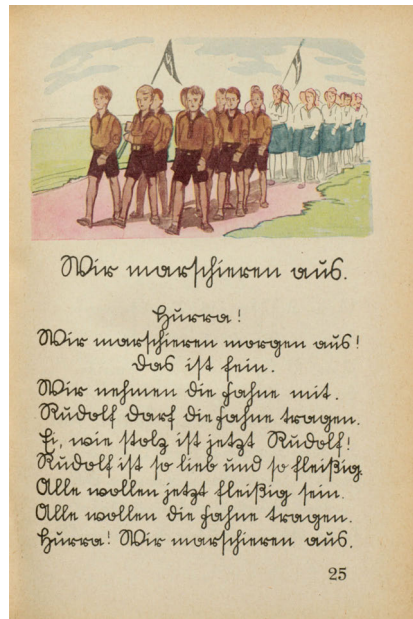 Wir marschieren aus.
Hurra!
Wir marschieren morgen aus!
Das ist fein.
Wir nehmen die Fahne mit.
Rudolf darf die Fahne tragen.
Ei, wie stolz ist jetzt Rudolf!
Rudolf ist so lieb und so fleißig.
Alle wollen jetzt fleißig sein.
Alle wollen die Fahne tragen.
Hurra! Wir marschieren aus.
25